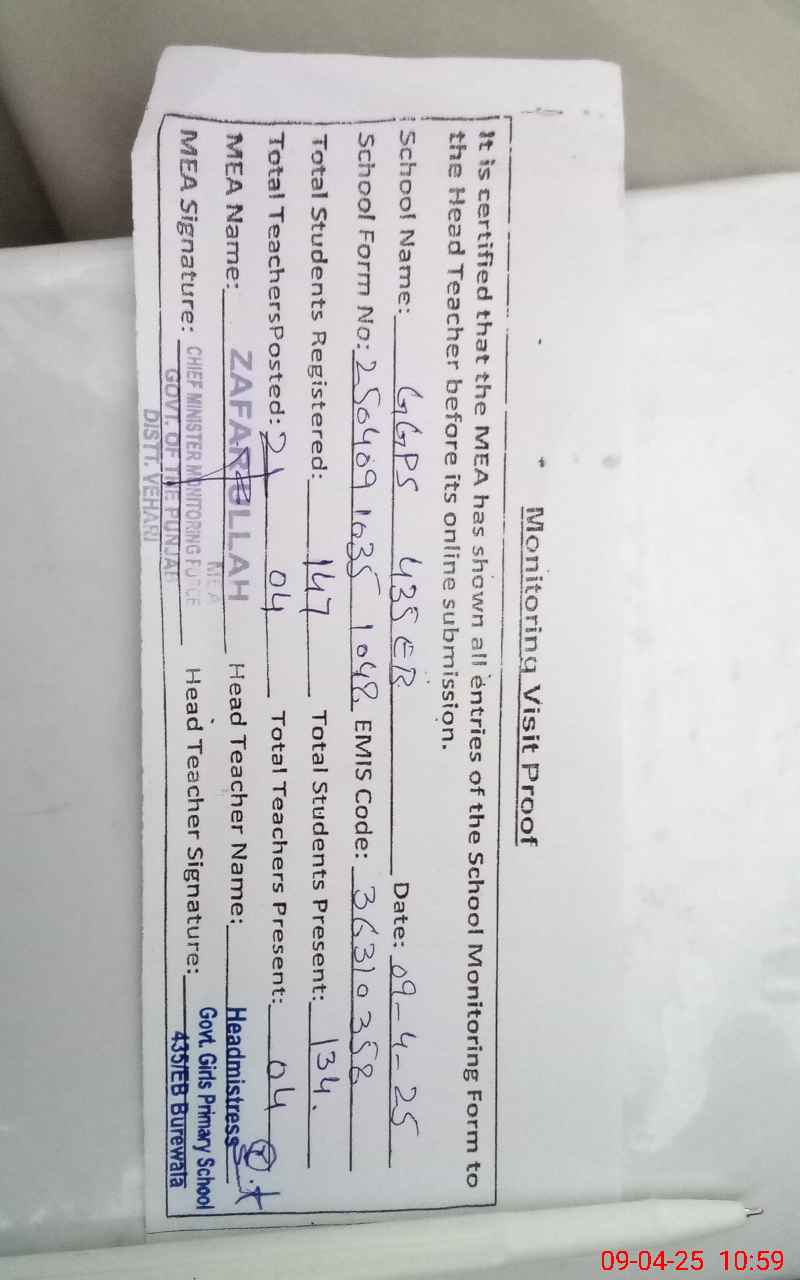 Monitoring Visit Proof
It is certified that the MEA has shown all entries of the School Monitoring Form to
the Head Teacher before its online submission.
School Name: GGPS 435 EB Date: 09-4-25
School Form No: 2504091635 1048 EMIS Code: 36310358
Total Students Registered: 147 Total Students Present: 134.
Total TeachersPosted: 04 Total Teachers Present: 04
MEA Name: ZAFARULLAH Head Teacher Name: Headmistress
MEA
MEA Signature: CHIEF MINISTER MONITORING FORCE Head Teacher Signature: Govt. Girls Primary School
GOVT. OF THE PUNJAB 435/EB Burewala
DISTT. VEHARI
09-04-25 10:59